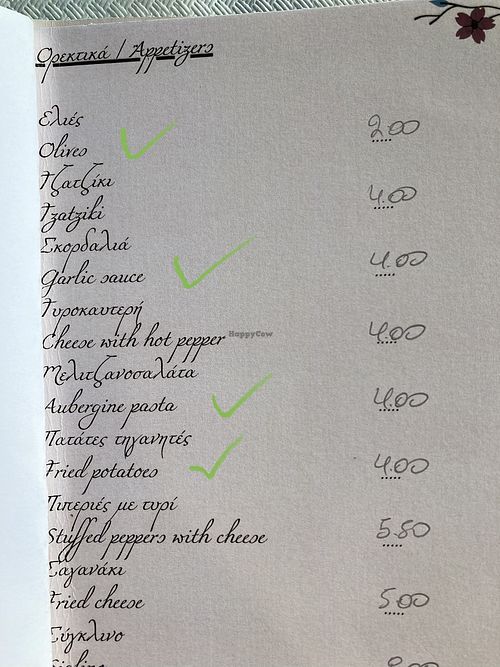 Ορεκτικά / Appetizers
Ελιές
Olives 2.00
Τζατζίκι
Tzatziki 4.00
Σκορδαλιά
Garlic sauce 4.00
Τυροκαυτερή
Cheese with hot pepper 4.00
HappyCow
Μελιτζανοσαλάτα
Aubergine pasta 4.00
Πατάτες τηγανητές
Fried potatoes 4.00
Πιπεριές με τυρί
Stuffed peppers with cheese 5.50
Σαγανάκι
Fried cheese 5.00
Σύγκλινο